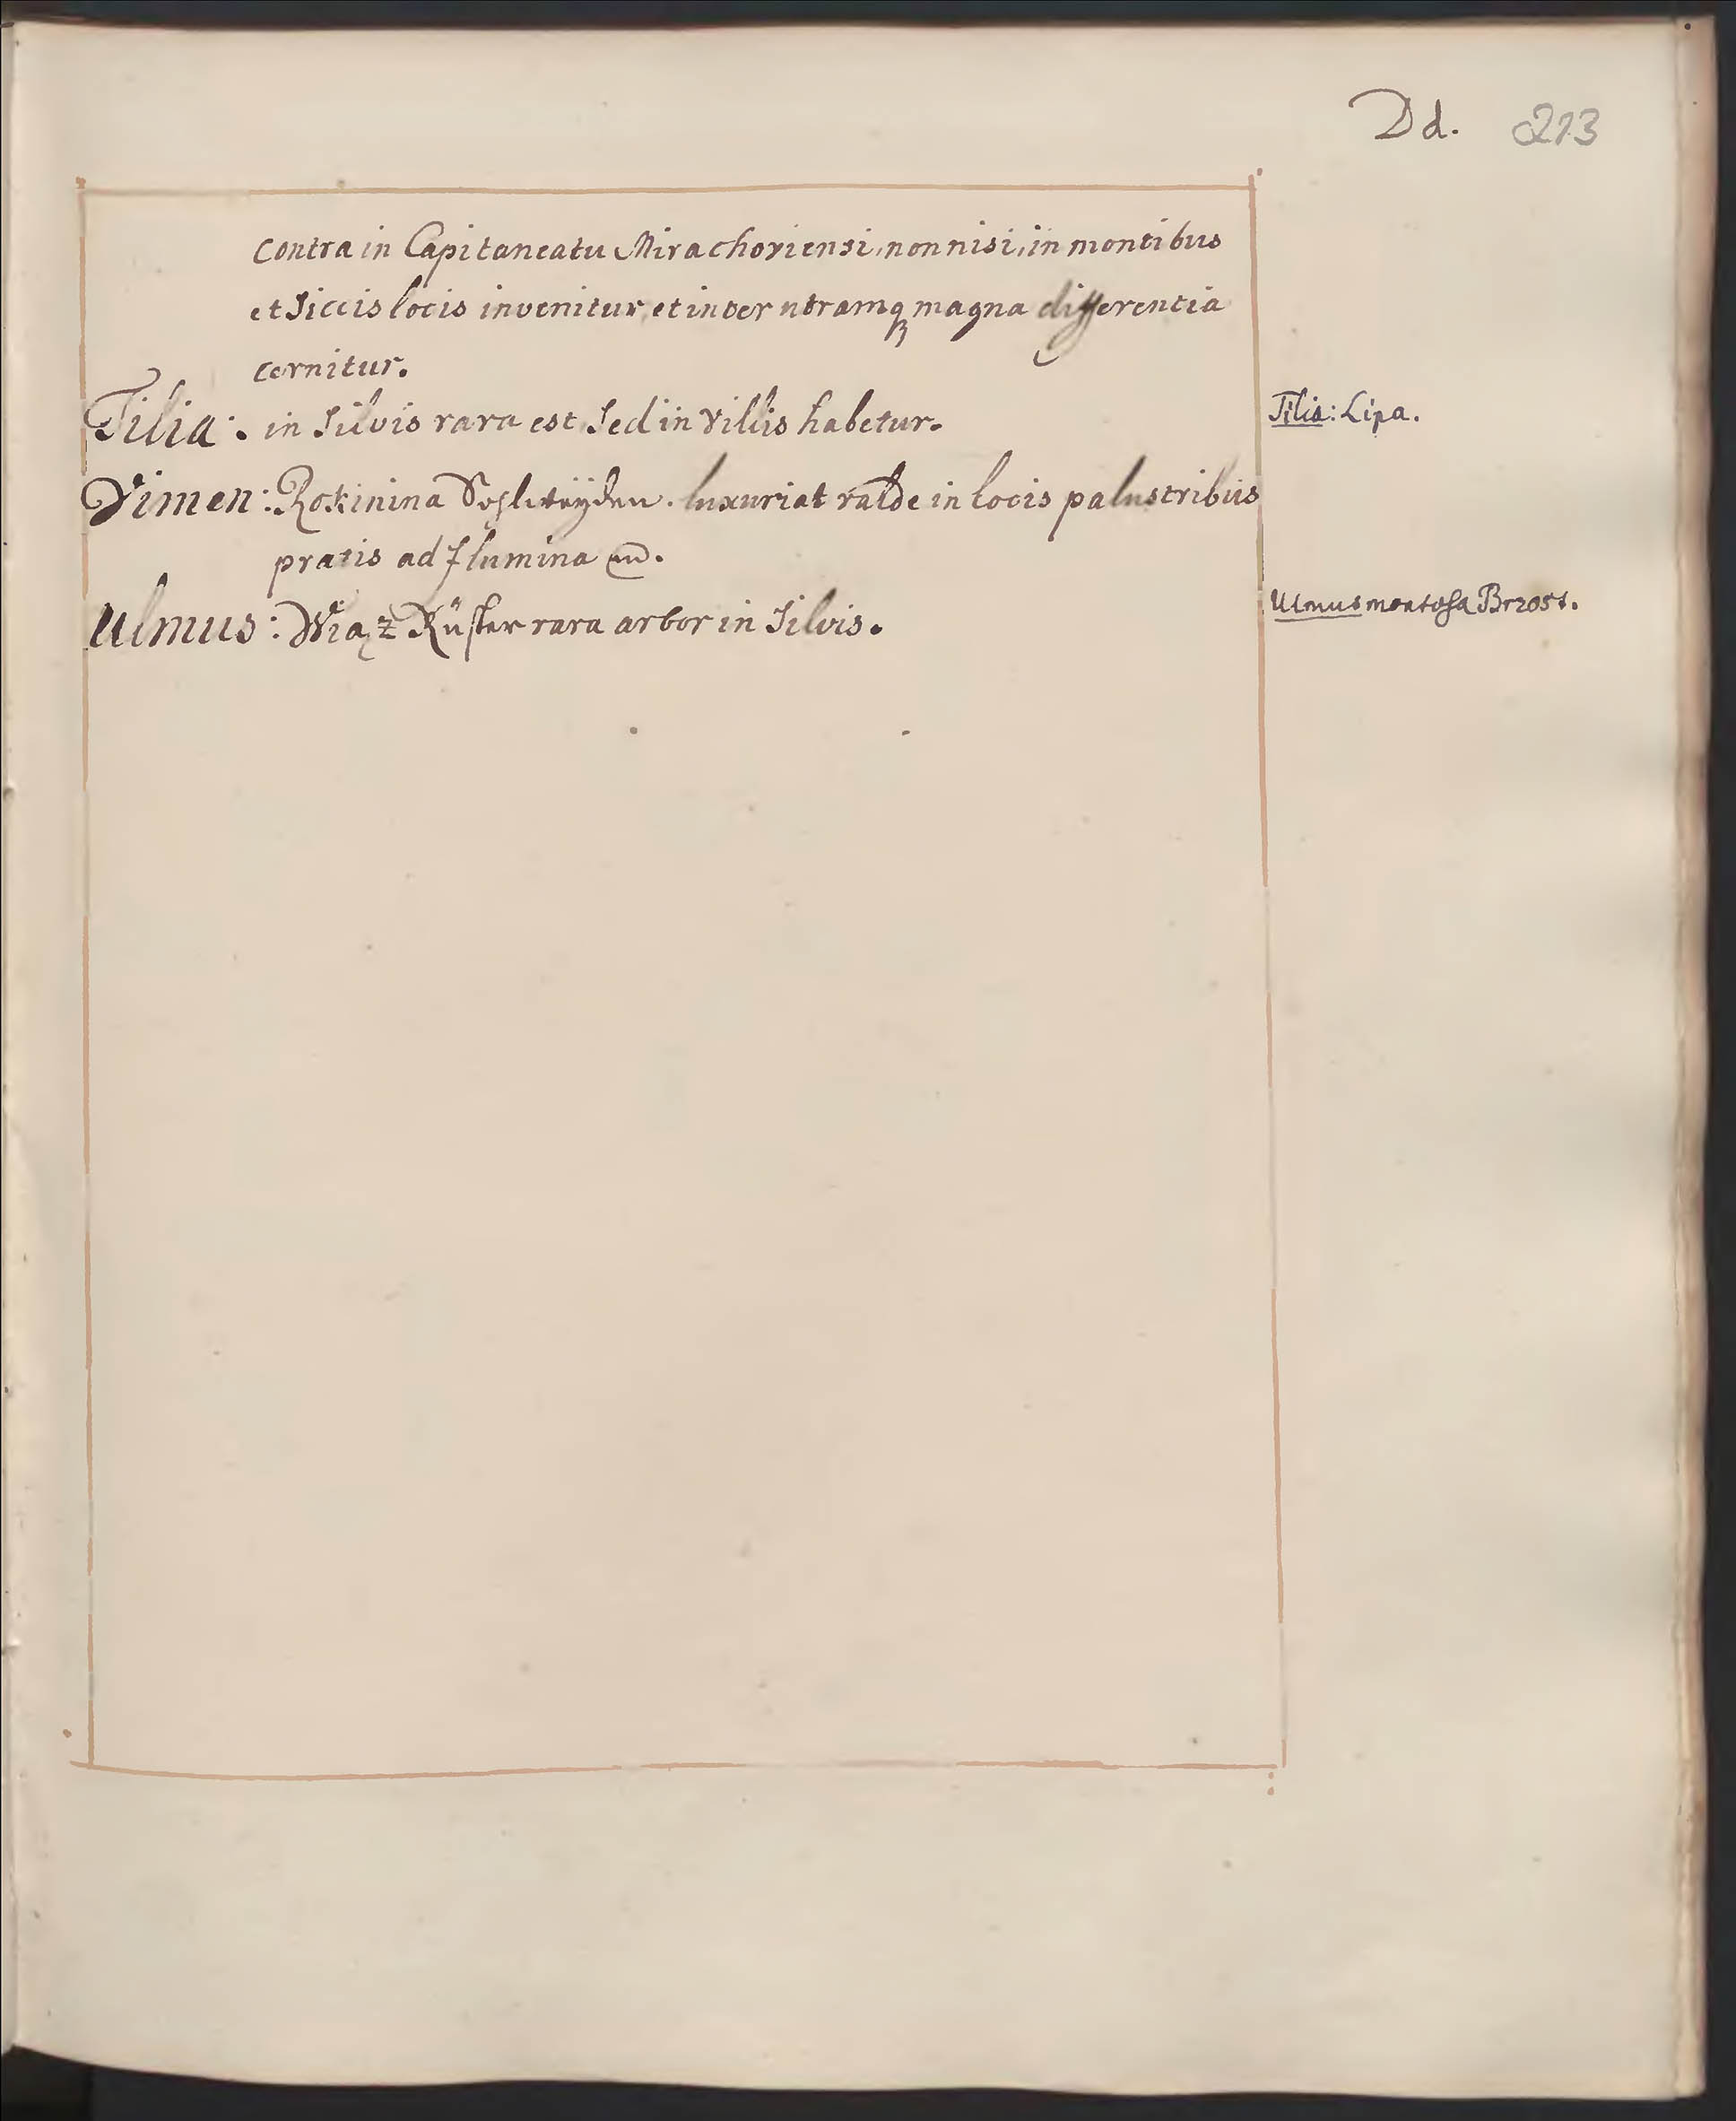 Dd. 213
contra in Capitaneatu Mirachoviensi, non nisi, in montibus
et siccis locis invenitur, et inter utramqꝫ magna differentia
cernitur.
Tilia: in silvis rara est, sed in villis habetur.
Tilia: Lipa.
Vimen: Rokinina luxuriat valde in locis palustribus
pratis ad flumina
Ulmus: Wiąz Rüster rara arbor in silvis.
Ulmus montosa Brzost.